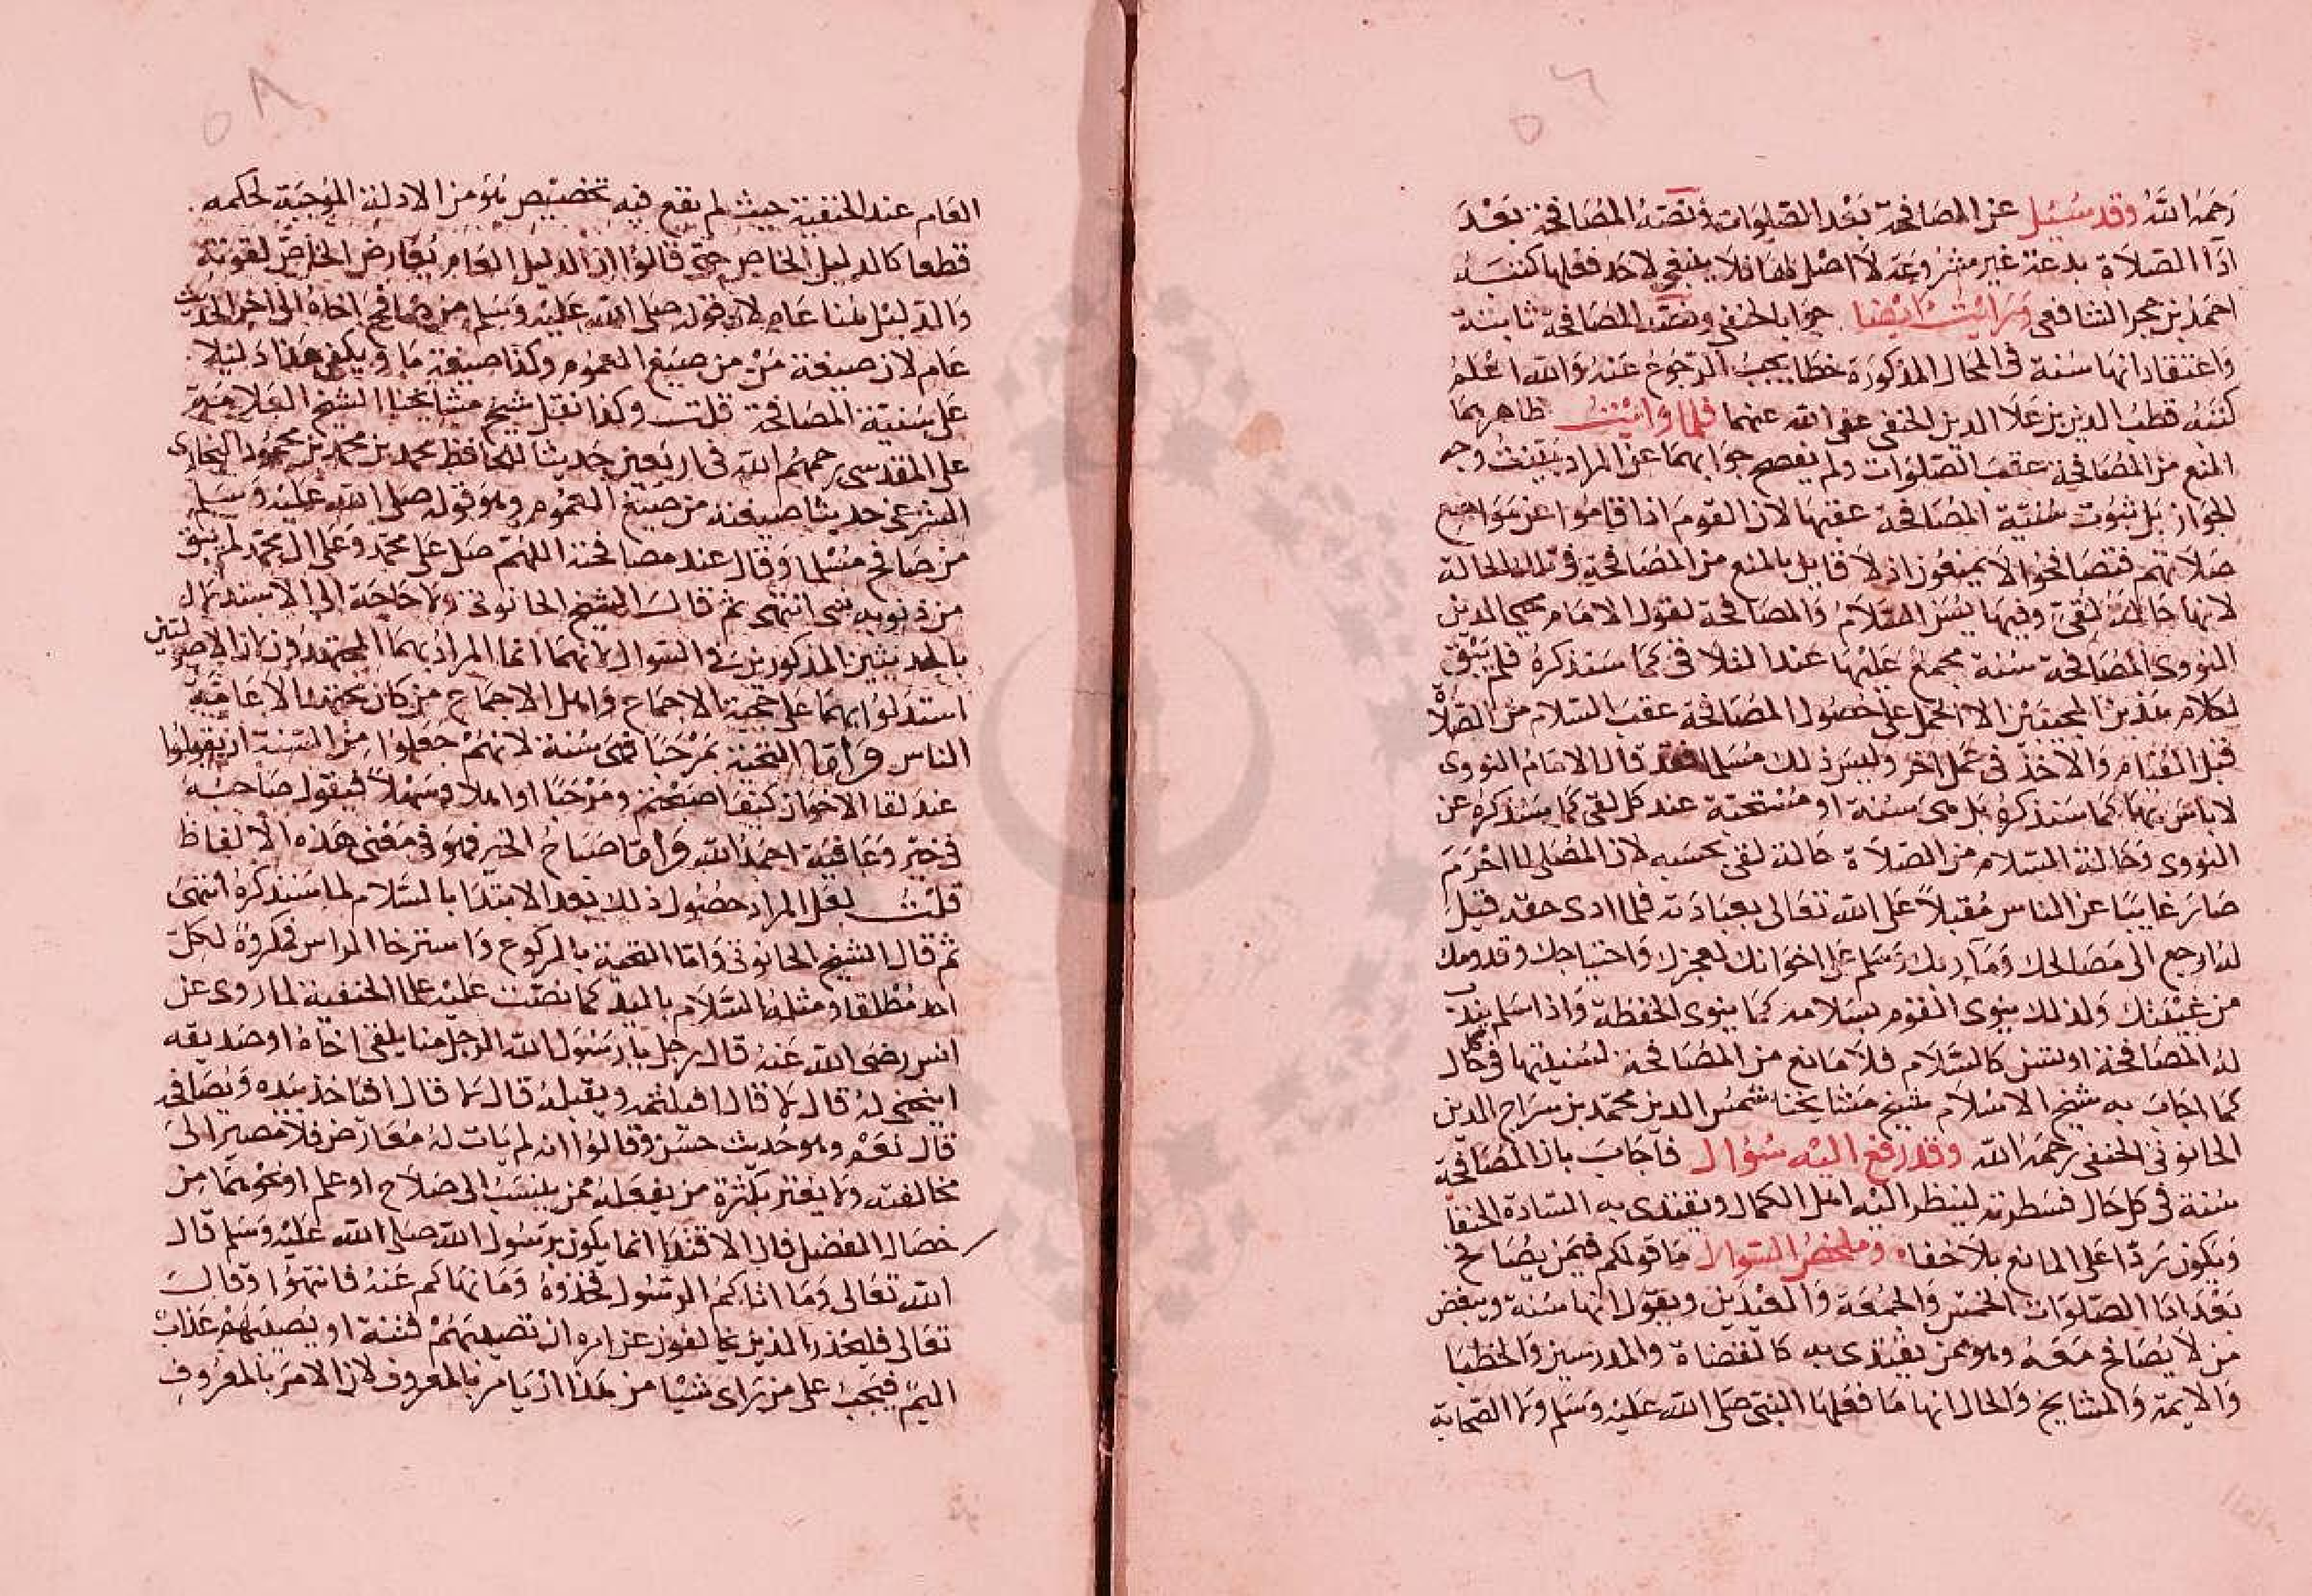 رحمه الله وقد سئل عن المصافحة بعد الصلوات ونصه المصافحة بعد
اداء الصلاة بدعة غير مشروعة لا اصل لها فلا ينبغي لاحد فعلها كتبه
احمد بن حجر الشافعي ورايت ايضا جوابا لحنفي ونصه المصافحة ثابتة
واعتقاد انها سنة في المحال المذكورة خطا يجب الرجوع عنه والله اعلم
كتبه قطب الدين بن علا الدين الحنفي عفى الله عنهما فلما رايت ظاهرهما
المنع من المصافحة عقب الصلوات ولم يفصح جوابهما عن المراد بينت وجه
الجواز بل ثبوت سنية المصافحة عقبها لان القوم اذا قاموا عن مواضع
صلاتهم فتصافحوا لا يمنعون اذ لا قايل بالمنع من المصافحة في تلك الحالة
لانها حالة لقى وفيها يسن السلام والمصافحة لقول الامام محيي الدين
النووى المصافحة سنة مجمع عليها عند التلاقى كما سنذكره فلم يبق
لكلام هذين المجيبين الا الحمل على حصول المصافحة عقب السلام من الصلاة
قبل القيام والاخذ في عمل اخر وليس ذلك مسلما فقد قال الامام النووى
لا باس بها كما سنذكره بل هى سنة او مستحبة عند كل لقى كما سنذكره عن
النووى وحالة السلام من الصلاة حالة لقى بحسبه لان المصلى لما احرم
صار غايبا عن الناس مقبلا على الله تعالى بعبادته فلما ادى حقه قيل
له ارجع الى مصالحك ومآربك وسلم على اخوانك لعجزك واحتياجك وقدومك
من غيبتك ولذلك ينوى القوم بسلامه كما ينوى الحفظة واذا سلم يندب
له المصافحة او تسن كالسلام فلا مانع من المصافحة لسنيتها في كل حال
كما اجاب به شيخ الاسلام شيخ مشايخنا شمس الدين محمد بن سراج الدين
الحانوتى الحنفى رحمه الله وقد رفع اليه سؤال فاجاب بان المصافحة
سنة في كل حال فسطرته لينظر اليه اهل الكمال ويقتدى به السادة الحنفا
ويكون ردا على المانع بلا خفاء وملخص السوال ما قولكم فيمن يصافح
بعد ادا الصلوات الخمس والجمعة والعيدين ويقول انها سنة ويبغض
من لا يصافح معه وهو ممن يقتدى به كالقضاة والمدرسين والخطبا
والايمة والمشايخ والحال انها ما فعلها النبى صلى الله عليه وسلم ولا الصحابة
العام عند الحنفية حيث لم يقع فيه تخصيص هو من الادلة الموجبة لحكمه
قطعا كالدليل الخاص حتى قالوا ان الدليل العام يعارض الخاص لقوته
والدليل هنا عام لان قوله صلى الله عليه وسلم من صافح اخاه الى اخر الحديث
عام لان صيغة من من صيغ العموم وكذا صيغة ما ويكفى هذا دليلا
على سنية المصافحة قلت وكذا نقل شيخ مشايخنا الشيخ العلامة
على المقدسى رحمهم الله في اربعين حديثا للحافظ محمد بن محمد بن محمود البخارى
الشرعى حديثا صيغته من صيغ العموم وهو قوله صلى الله عليه وسلم
من صافح مسلما وقال عند مصافحته اللهم صل على محمد وعلى ال محمد لم يبق
من ذنوبه شى انتهى ثم قال الشيخ الحانوتى ولا حاجة الى الاستدلال
بالحديثين المذكورين في السوال لانهما انما المراد بهما المجتهدون لان الاصوليين
استدلوا بهما على حجية الاجماع واهل الاجماع من كان مجتهدا لا عامة
الناس واما التحية بمرحبا فهى سنة لانهم جعلوا من السنة ان يقولوا
عند لقا الاخوان كيف اصبحتم ومرحبا او اهلا وسهلا فيقول صاحبه
في خير وعافية احمد الله واما صباح الخير فهو في معنى هذه الالفاظ
قلت لعل المراد حصول ذلك بعد الابتدا بالسلام لما سنذكره انتهى
ثم قال الشيخ الحانوتى واما التحية بالركوع واسترخا الراس فمكروه لكل
احد مطلقا ومثله السلام باليد كما نصت عليه علما الحنفية لما روى عن
انس رضى الله عنه قال رجل يا رسول الله الرجل منا يلقى اخاه او صديقه
اينحنى له قال لا قال افيلتزمه ويقبله قال لا قال افياخذ بيده ويصافحه
قال نعم وهو حديث حسن وقالوا انه لم يات له معارض فلا مصير الى
مخالفته ولا يغتر بكثرة من يفعله ممن ينسب الى صلاح او علم او نحوهما من
خصال الفضل فان الاقتدا انما يكون برسول الله صلى الله عليه وسلم قال
الله تعالى وما اتاكم الرسول فخذوه وما نهاكم عنه فانتهوا وقال
تعالى فليحذر الذين يخالفون عن امره ان تصيبهم فتنة او يصيبهم عذاب
اليم فيجب على من راى شيئا من هذا ان يامر بالمعروف لان الامر بالمعروف